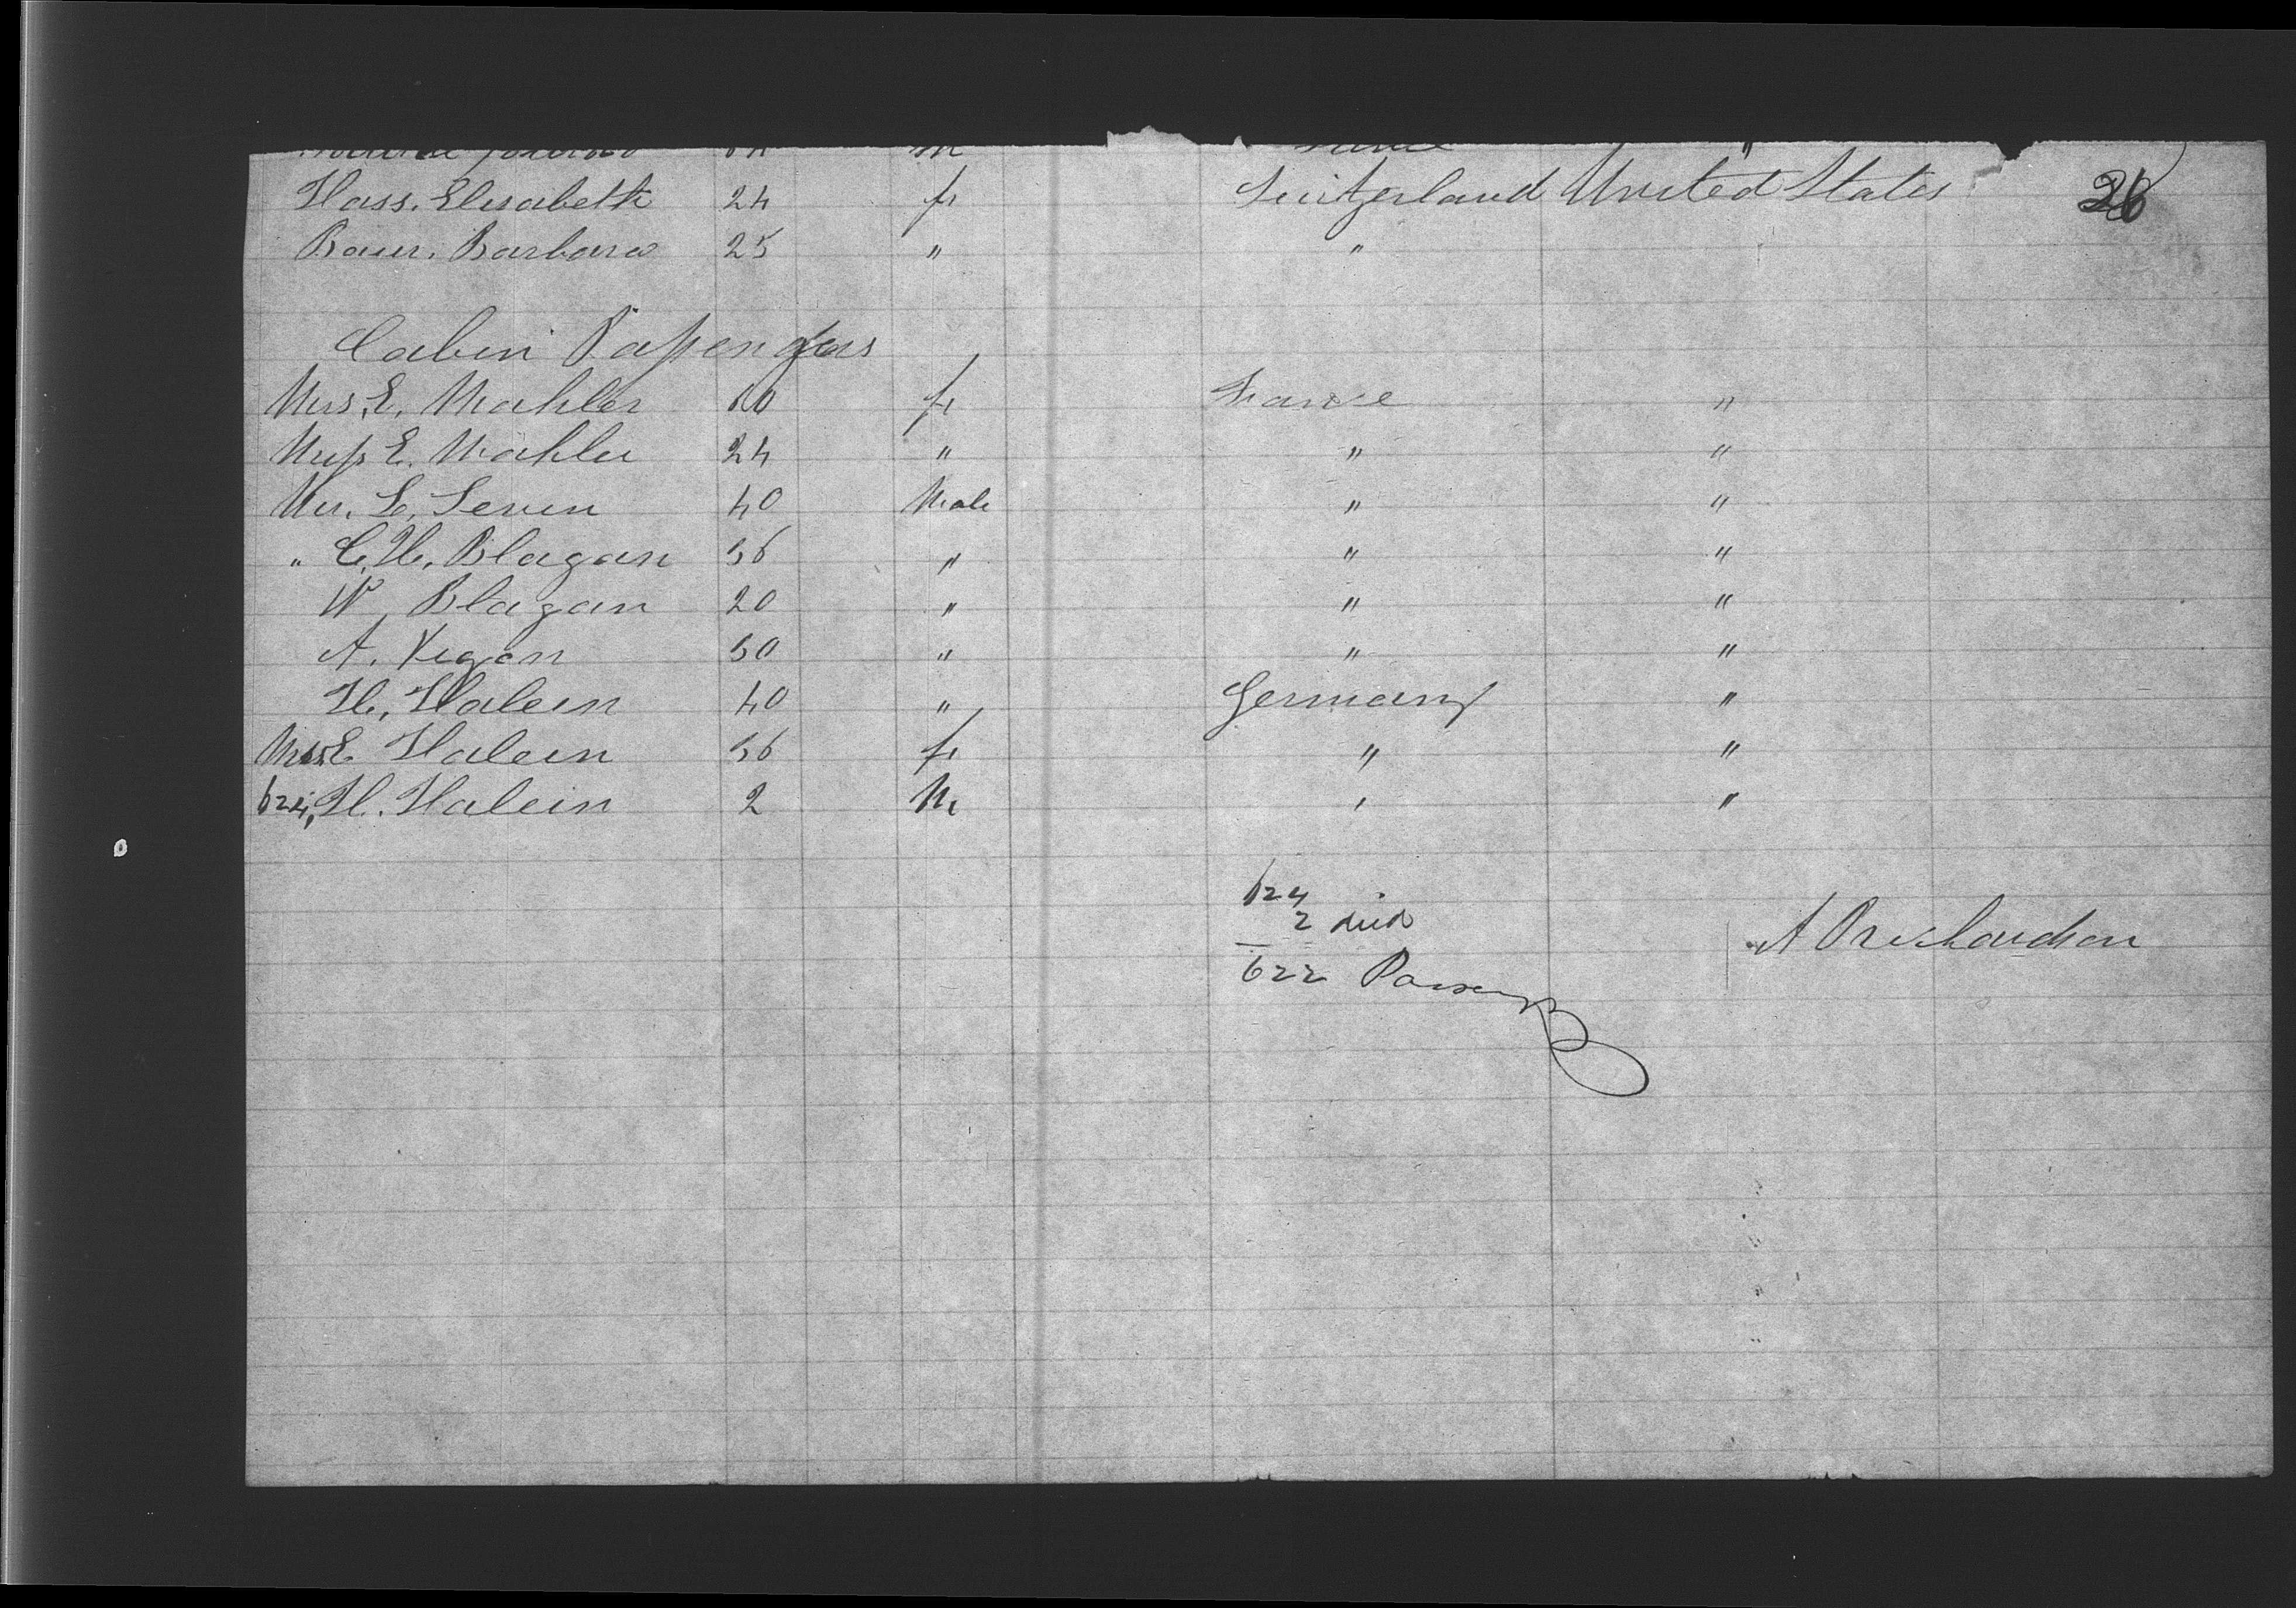 26
Hass. Elisabeth 24 f. Switzerland United States
Baur. Barbara 25 " "
Cabin Passengers
Mrs. E. Mahler 60 f. France "
Miss E. Mahler 24 " " "
Mr. L. 40 Male " "
" C. H. Blagan 36 " " "
W. Blagan 20 " " "
A. 50 " " "
H. Halein 40 " Germany "
Mrs. E Halein 36 f. " "
624, H. Halein 2 M. " "
624
2 died
622
A Richardson